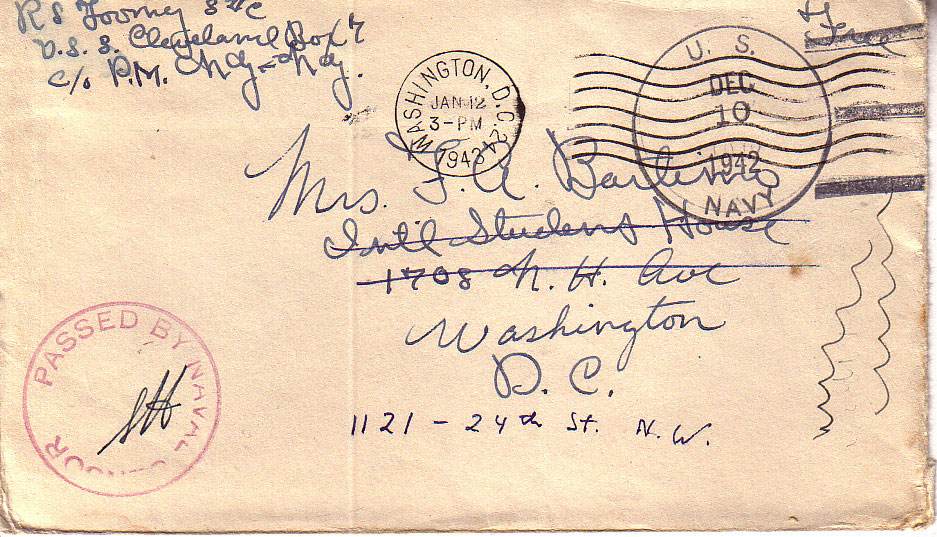 R S Toomey S 2/c
U.S.S. Cleveland Box 7
c/o P.M. N.Y. - N.Y.
Free
WASHINGTON, D.C. 24
JAN 12
3-PM
1943
U. S.
DEC
10
1942
NAVY
Mrs.
Int'l Student House
1708 N. H. Ave
Washington
D. C.
1121 - 24th St. N.W.
PASSED BY NAVAL CENSOR